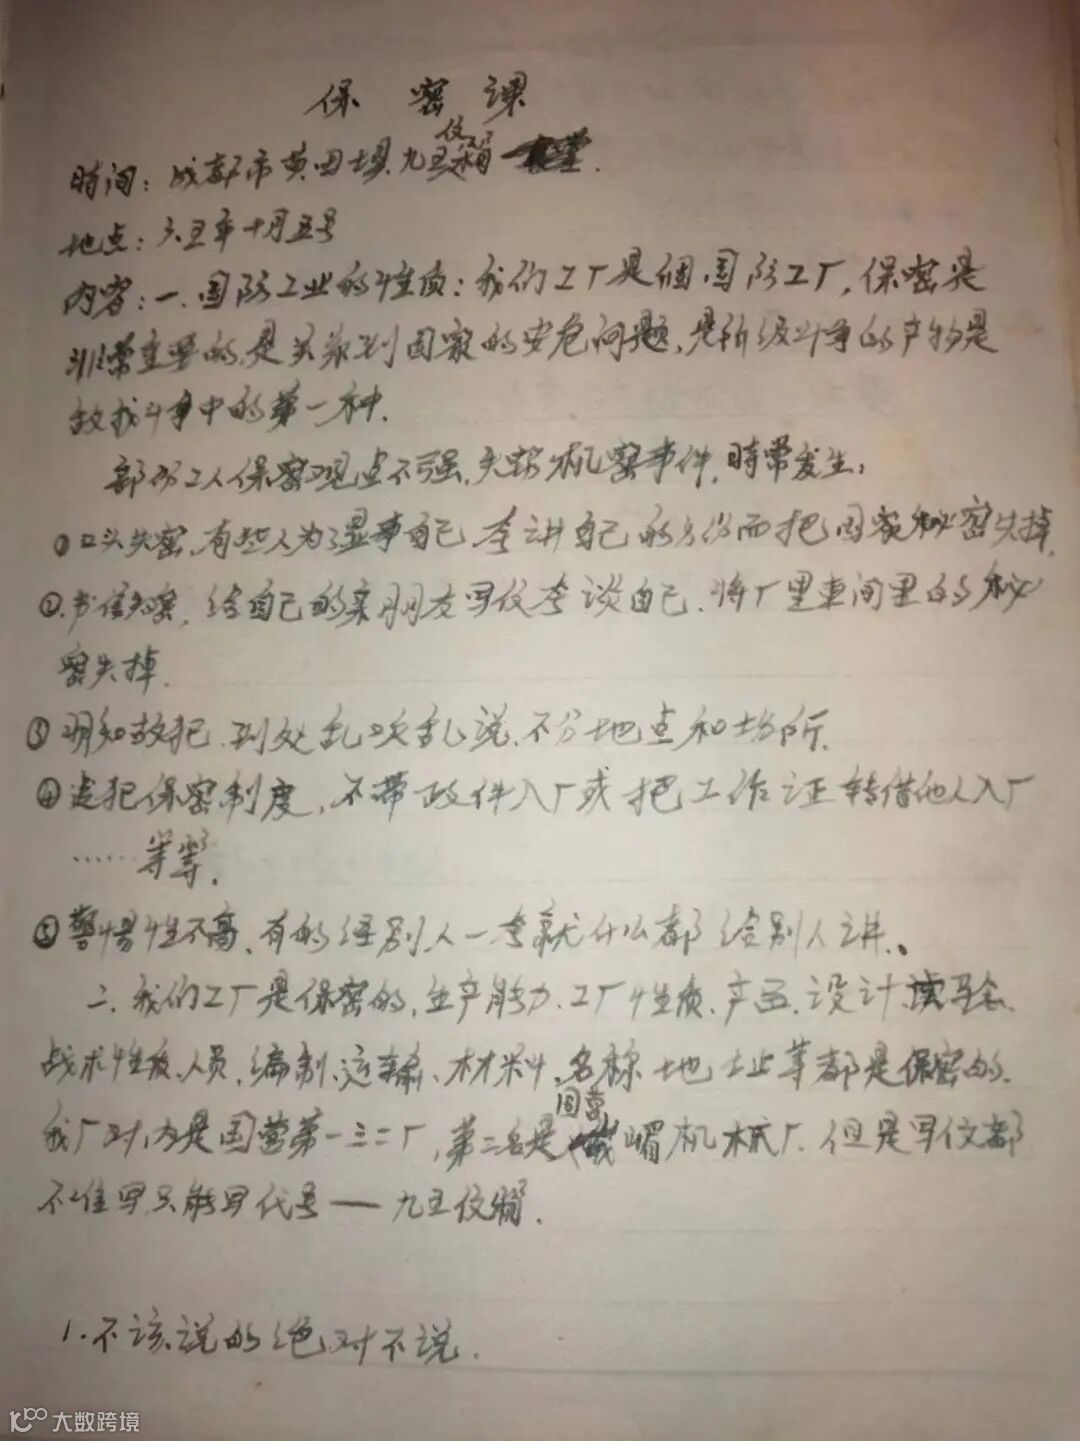 保密课
時间：成都市黄田坝九五信箱
地点：六五年十月五号
内容：一.国防工业的性质：我们工厂是個国防工厂，保密是
非常重要的,是关系到国家的安危问题,是阶级斗争的产物是
敌我斗争中的第一种.
部份工人保密观点不强,失窃机密事件,時常发生：
①口头失密,有些人为了显事自己,夸讲自己的身份而把国家秘密失掉,
②.书信失密,给自己的亲朋友写信夸谈自己.将厂里車间里的秘
密失掉.
③明知故犯.到处乱吹乱说.不分地点和场所.
④违犯保密制度,不带政件入厂或把工作证转借他人入厂
……等等.
⑤警惕性不高、有的经别人一夸就什么都给别人讲.
二.我们工厂是保密的,生产能力.工厂性质.产品.设计.试验.
战术性质.人员.编制.运输.材料.名称地址等都是保密的.
我厂对内是国营第一三二厂,第二名是国营峨嵋机械厂.但是写信都
不准写,只能写代号——九五信箱.
1.不该说的绝对不说.
大数跨境